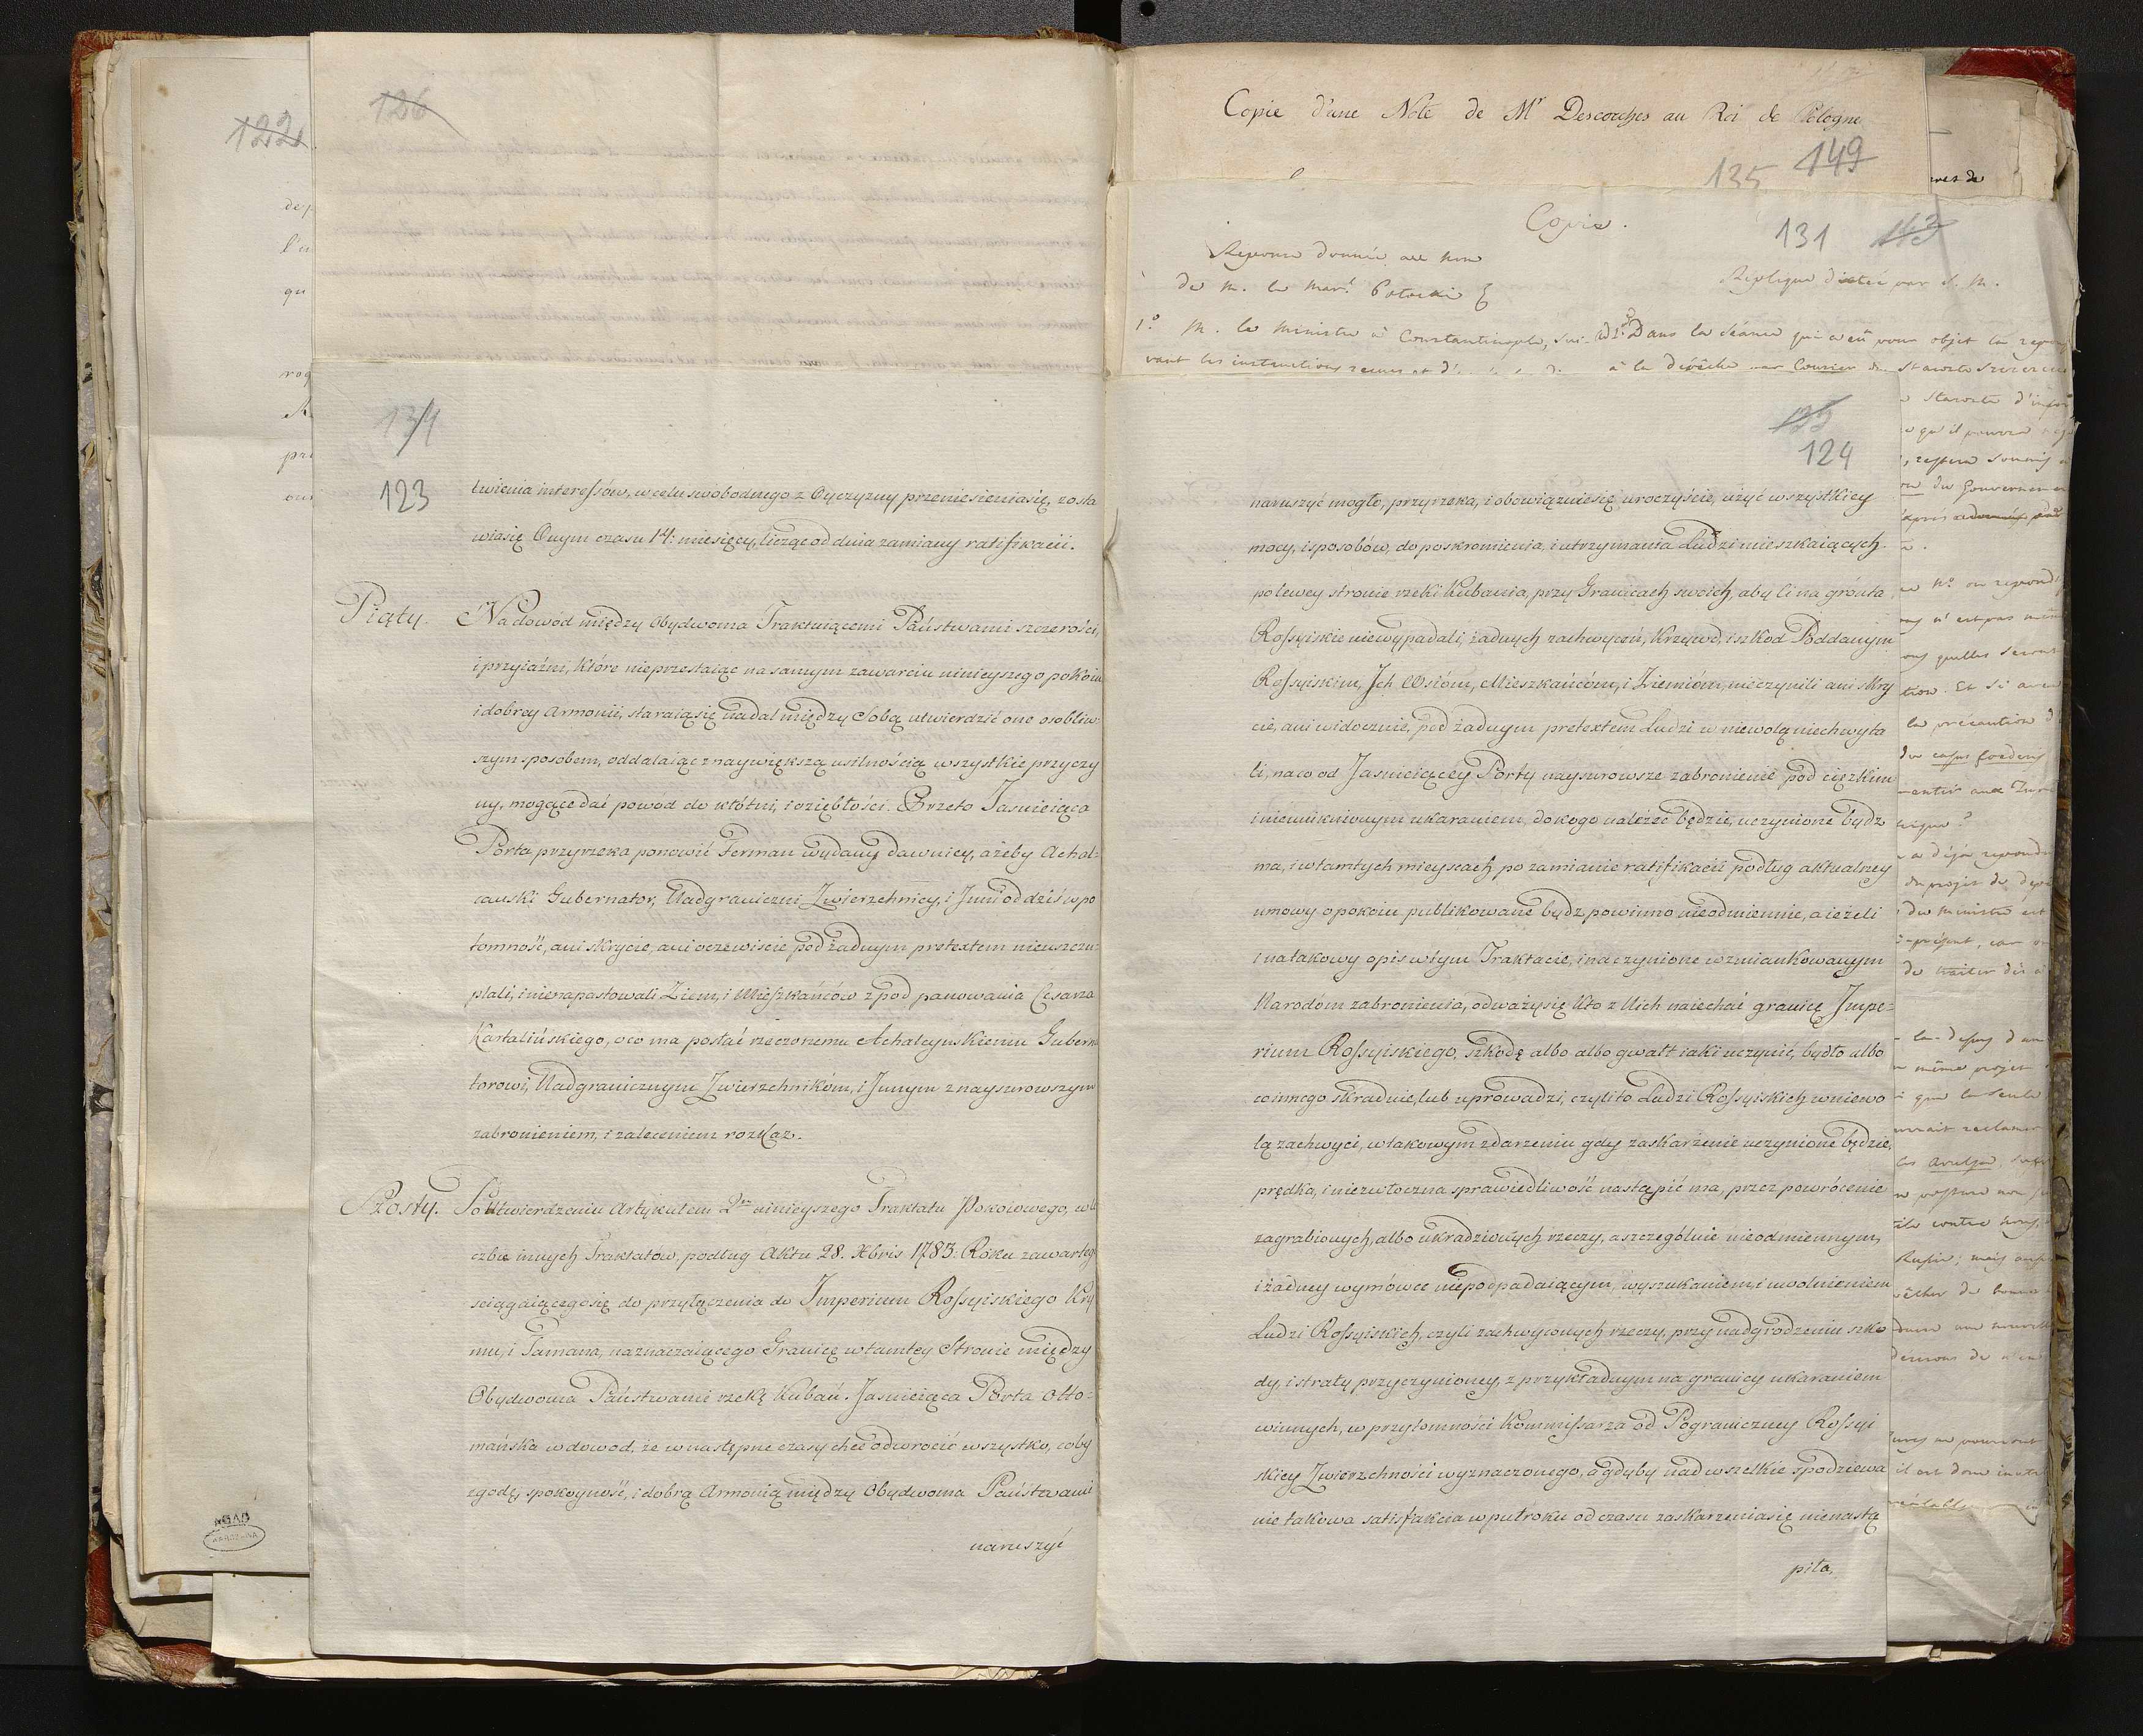 122
126
134
123
twienia interessów, w celu swobodnego z Oyczyzny przeniesienia się, zosta
wia się Onym czasu 14: miesięcy, licząc od dnia zamiany ratifikacii.
Piąty. Na dowód między Obydwoma Traktuiącemi Państwami szczerości,
i przyiaźni, które nieprzestaiąc na samym zawarciu ninieyszego pokoiu
i dobrey Armonii, staraią się nadal między Sobą utwierdzić one osobliw-
szym sposobem, oddalaiąc z naywiększą usilnością wszystkie przyczy
ny, mogące dać powód do kłótni, i oziębłości. Przeto Jasnieiąca
Porta przyrzeka ponowić Ferman wydany dawniey, ażeby Achal-
canski Gubernator, Nadgraniczni Zwierzchnicy, i Jnni od dziś w po
tomność, ani skrycie, ani oczewiscie pod żadnym pretextem nieuszczu-
plali, i nienapastowali Ziem, i Mieszkańców z pod panowania Cesarza
Kartalińskiego, o co ma postać rzeczonemu Achalcynskiemu Guberna
torowi, Nadgranicznym Zwierzchnikóm, i Jnnym z naysurowszym
zabronieniem, i zaleceniem rozkaz.
Szosty. Po utwierdzeniu Artykułem 2m ninieyszego Traktatu Pokoiowego, w li
czbie innych Traktatów, podług Aktu 28. Xbris 1783: Roku zawartego
sciągaiącego się do przyłączenia do Imperium Rossyiskiego Kry
mu, i Tamana, naznaczaiącego Granicę w tamtey Stronie między
Obydwoma Państwami rzekę Kubań. Jasnieiąca Porta Otto-
mańska w dowod, że w następne czasy chce odwrocić wszystko, coby
zgodę, spokoyność, i dobrą Armonią między Obydwoma Państwami
naruszyć
AGAD
WARSZAWA
Copie d'une Note de Mr Descorches au Roi de Pologne
149
135
Copie.
131 143
Reponse donnée au nom
de M. le Maral Potocki
Replique dictée par S. M.
1o M. le Ministre à Constantinople, sui-
vant les instructions
Dans la Séance qui a eü pour objet la
à la dépêche par Courier du Staroste
133
124
naruszyć mogło, przyrzeka, i obowiązuie się uroczyście, użyć wszystkiey
mocy, i sposobów, do poskromienia, i utrzymania Ludzi mieszkaiących
po lewey stronie rzeki Kubania, przy Granicach swoich, aby li na grónta
Rossyiskie niewypadali, żadnych zachwyceń, krzywd, i szkod Poddanym
Rossyiskim, Jch Wsióm, Mieszkańcóm, i Ziemióm, nieczynili ani skry
cie, ani widocznie, pod żadnym pretextem Ludzi w niewolą niechwyta
li, na co od Jasnieiącey Porty naysurowsze zabronienie pod ciężkim
i nieuniknionym ukaraniem, do kogo należeć będzie, uczynione bydz
ma, i w tamtych mieyscach po zamianie ratifikacii podług aktualney
umowy o pokoiu publikowane bydz powinno nieodmiennie, a ieżeli
i na takowy opis w tym Traktacie, i na czynione wzmiankowanym
Narodóm zabronienia, odważy się kto z Nich naiechać granicę Jmpe-
rium Rossyiskiego, szkodę albo albo gwałt iaki uczynić, bydło albo
co innego skradnie, lub uprowadzi, czyli to Ludzi Rossyiskich w niewo
lą zachwyci, w takowym zdarzeniu gdy zaskarżenie uczynione będzie,
prędka, i niezwłoczna sprawiedliwość nastąpić ma, przez powrócenie
zagrabionych, albo ukradzionych rzeczy, a szczególnie nieodmiennym,
i żadney wymówce niepodpadaiącym, wyszukaniem, i uwolnieniem
Ludzi Rossyiskich, czyli zachwyconych rzeczy, przy nadgrodzeniu szko
dy, i straty przyczynioney, z przykładnym na granicy ukaraniem
winnych, w przytomności Kommissarza od Pograniczney Rossyi
skiey Zwierzchności wyznaczonego, a gdyby nad wszelkie spodziewa
nie takowa satisfakcia w puł roku od czasu zaskarzenia się nienastą
piła,